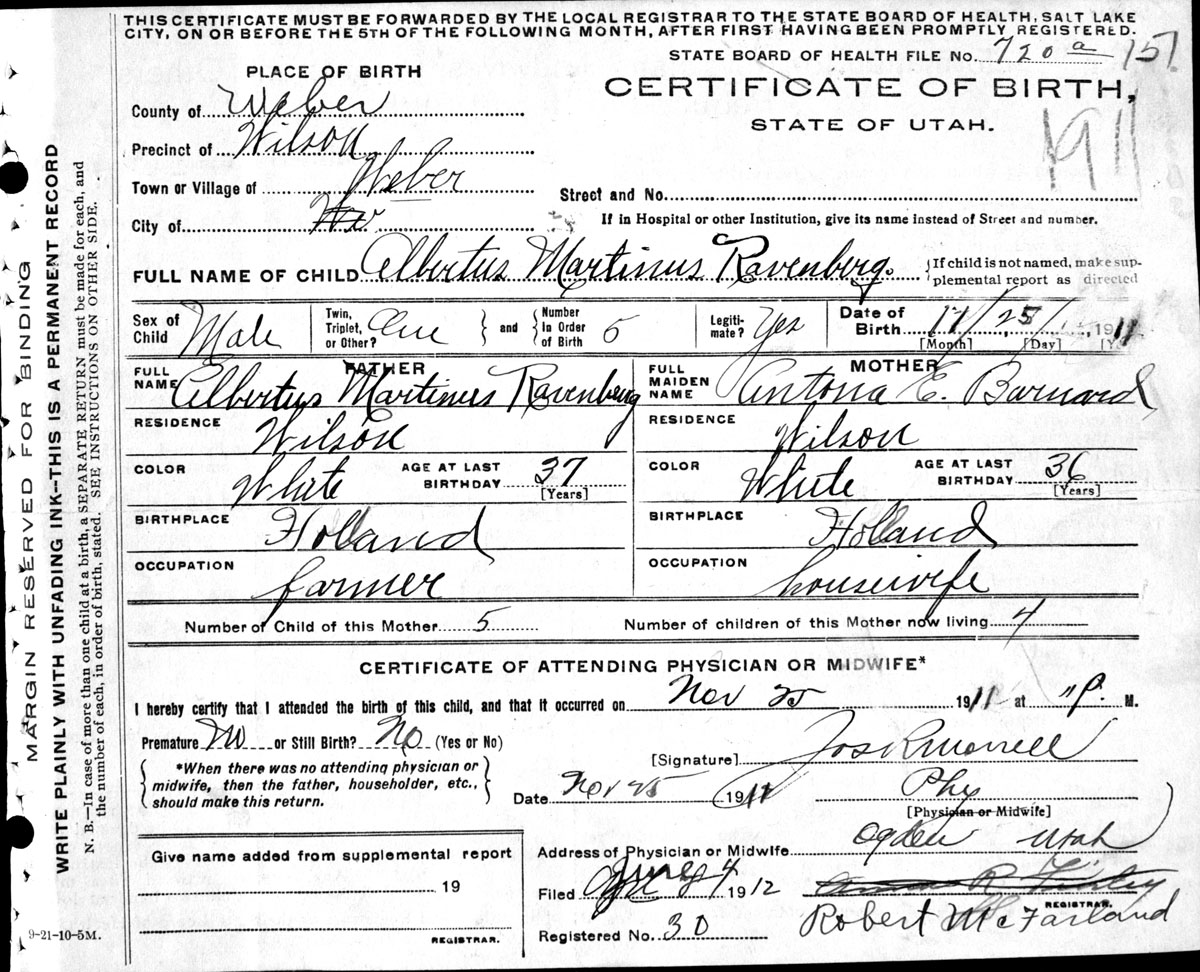 THIS CERTIFICATE MUST BE FORWARDED BY THE LOCAL REGISTRAR TO THE STATE BOARD OF HEALTH, SALT LAKE
CITY, ON OR BEFORE THE 5TH OF THE FOLLOWING MONTH, AFTER FIRST HAVING BEEN PROMPTLY REGISTERED.
STATE BOARD OF HEALTH FILE No. 720 a 151
PLACE OF BIRTH
CERTIFICATE OF BIRTH,
STATE OF UTAH.
1911
County of Weber
Precinct of Wilson
Town or Village of Weber
Street and No.
City of
If in Hospital or other Institution, give its name instead of Street and number.
FULL NAME OF CHILD Albertus Martinus Ravenberg. {If child is not named, make supplemental report as directed
Sex of Child Male
Twin, Triplet, or Other? One } and { Number In Order of Birth 5
Legitimate? Yes
Date of Birth 11/25/ 1911
[Month] [Day]
FATHER
FULL NAME Albertus Martinus Ravenberg
RESIDENCE Wilson
COLOR White AGE AT LAST BIRTHDAY 37 [Years]
BIRTHPLACE Holland
OCCUPATION farmer
MOTHER
FULL MAIDEN NAME Antona E. Barnard
RESIDENCE Wilson
COLOR White AGE AT LAST BIRTHDAY 36 [Years]
BIRTHPLACE Holland
OCCUPATION housewife
Number of Child of this Mother 5 Number of children of this Mother now living 4
CERTIFICATE OF ATTENDING PHYSICIAN OR MIDWIFE*
I hereby certify that I attended the birth of this child, and that it occurred on Nov 25 1911 at 11 P. M.
Premature No or Still Birth? No (Yes or No)
*When there was no attending physician or
midwife, then the father, householder, etc.,
should make this return.
[Signature] Jos R Morrell
Date Nov 25 1911 Phy
[Physician or Midwife]
Address of Physician or Midwife Ogden Utah
Give name added from supplemental report
19
REGISTRAR.
Filed June 4 1912
REGISTRAR.
Robert McFarland
Registered No. 30
9-21-10-5M.
MARGIN RESERVED FOR BINDING
WRITE PLAINLY WITH UNFADING INK--THIS IS A PERMANENT RECORD
N. B.—In case of more than one child at a birth, a SEPARATE RETURN must be made for each, and
the number of each, in order of birth, stated. SEE INSTRUCTIONS ON OTHER SIDE.